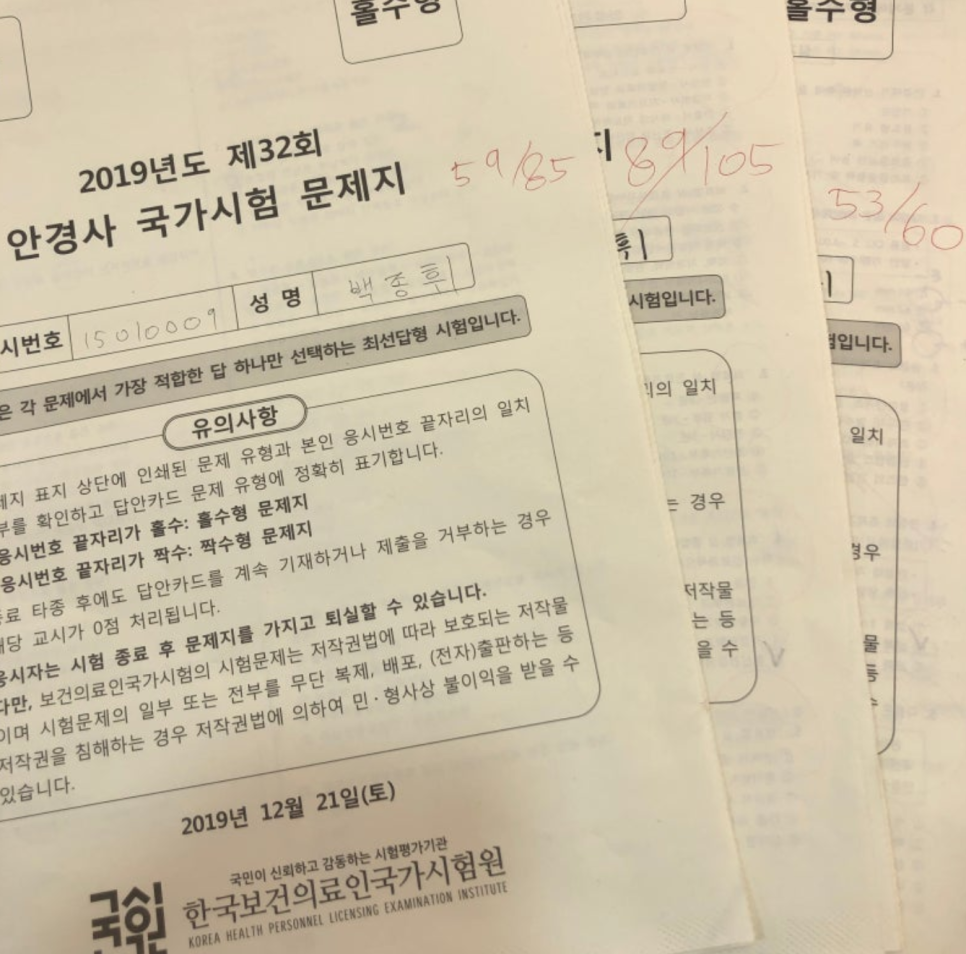 홀수형
2019년도 제32회
안경사 국가시험 문제지
59/85
시번호 15010009 성 명 백종휘
은 각 문제에서 가장 적합한 답 하나만 선택하는 최선답형 시험입니다.
유의사항
제지 표지 상단에 인쇄된 문제 유형과 본인 응시번호 끝자리의 일치
부를 확인하고 답안카드 문제 유형에 정확히 표기합니다.
응시번호 끝자리가 홀수: 홀수형 문제지
응시번호 끝자리가 짝수: 짝수형 문제지
종료 타종 후에도 답안카드를 계속 기재하거나 제출을 거부하는 경우
해당 교시가 0점 처리됩니다.
응시자는 시험 종료 후 문제지를 가지고 퇴실할 수 있습니다.
다만, 보건의료인국가시험의 시험문제는 저작권법에 따라 보호되는 저작물
이며 시험문제의 일부 또는 전부를 무단 복제, 배포, (전자)출판하는 등
저작권을 침해하는 경우 저작권법에 의하여 민·형사상 불이익을 받을 수
있습니다.
2019년 12월 21일(토)
국민이 신뢰하고 감동하는 시험평가기관
국시원
한국보건의료인국가시험원
KOREA HEALTH PERSONNEL LICENSING EXAMINATION INSTITUTE
지
89/105
휘
시험입니다.
의 일치
는 경우
저작물
는 등
을 수
홀수형
53/60
험입니다.
일치
경우
물
등